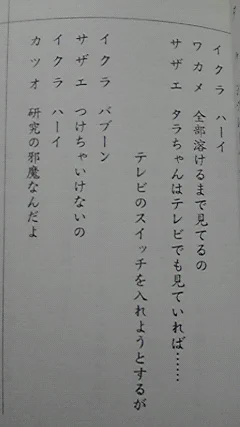 イクラ　ハーイ
ワカメ　全部溶けるまで見てるの
サザエ　タラちゃんはテレビでも見ていれば……
テレビのスイッチを入れようとするが
イクラ　バブーン
サザエ　つけちゃいけないの
イクラ　ハーイ
カツオ　研究の邪魔なんだよ